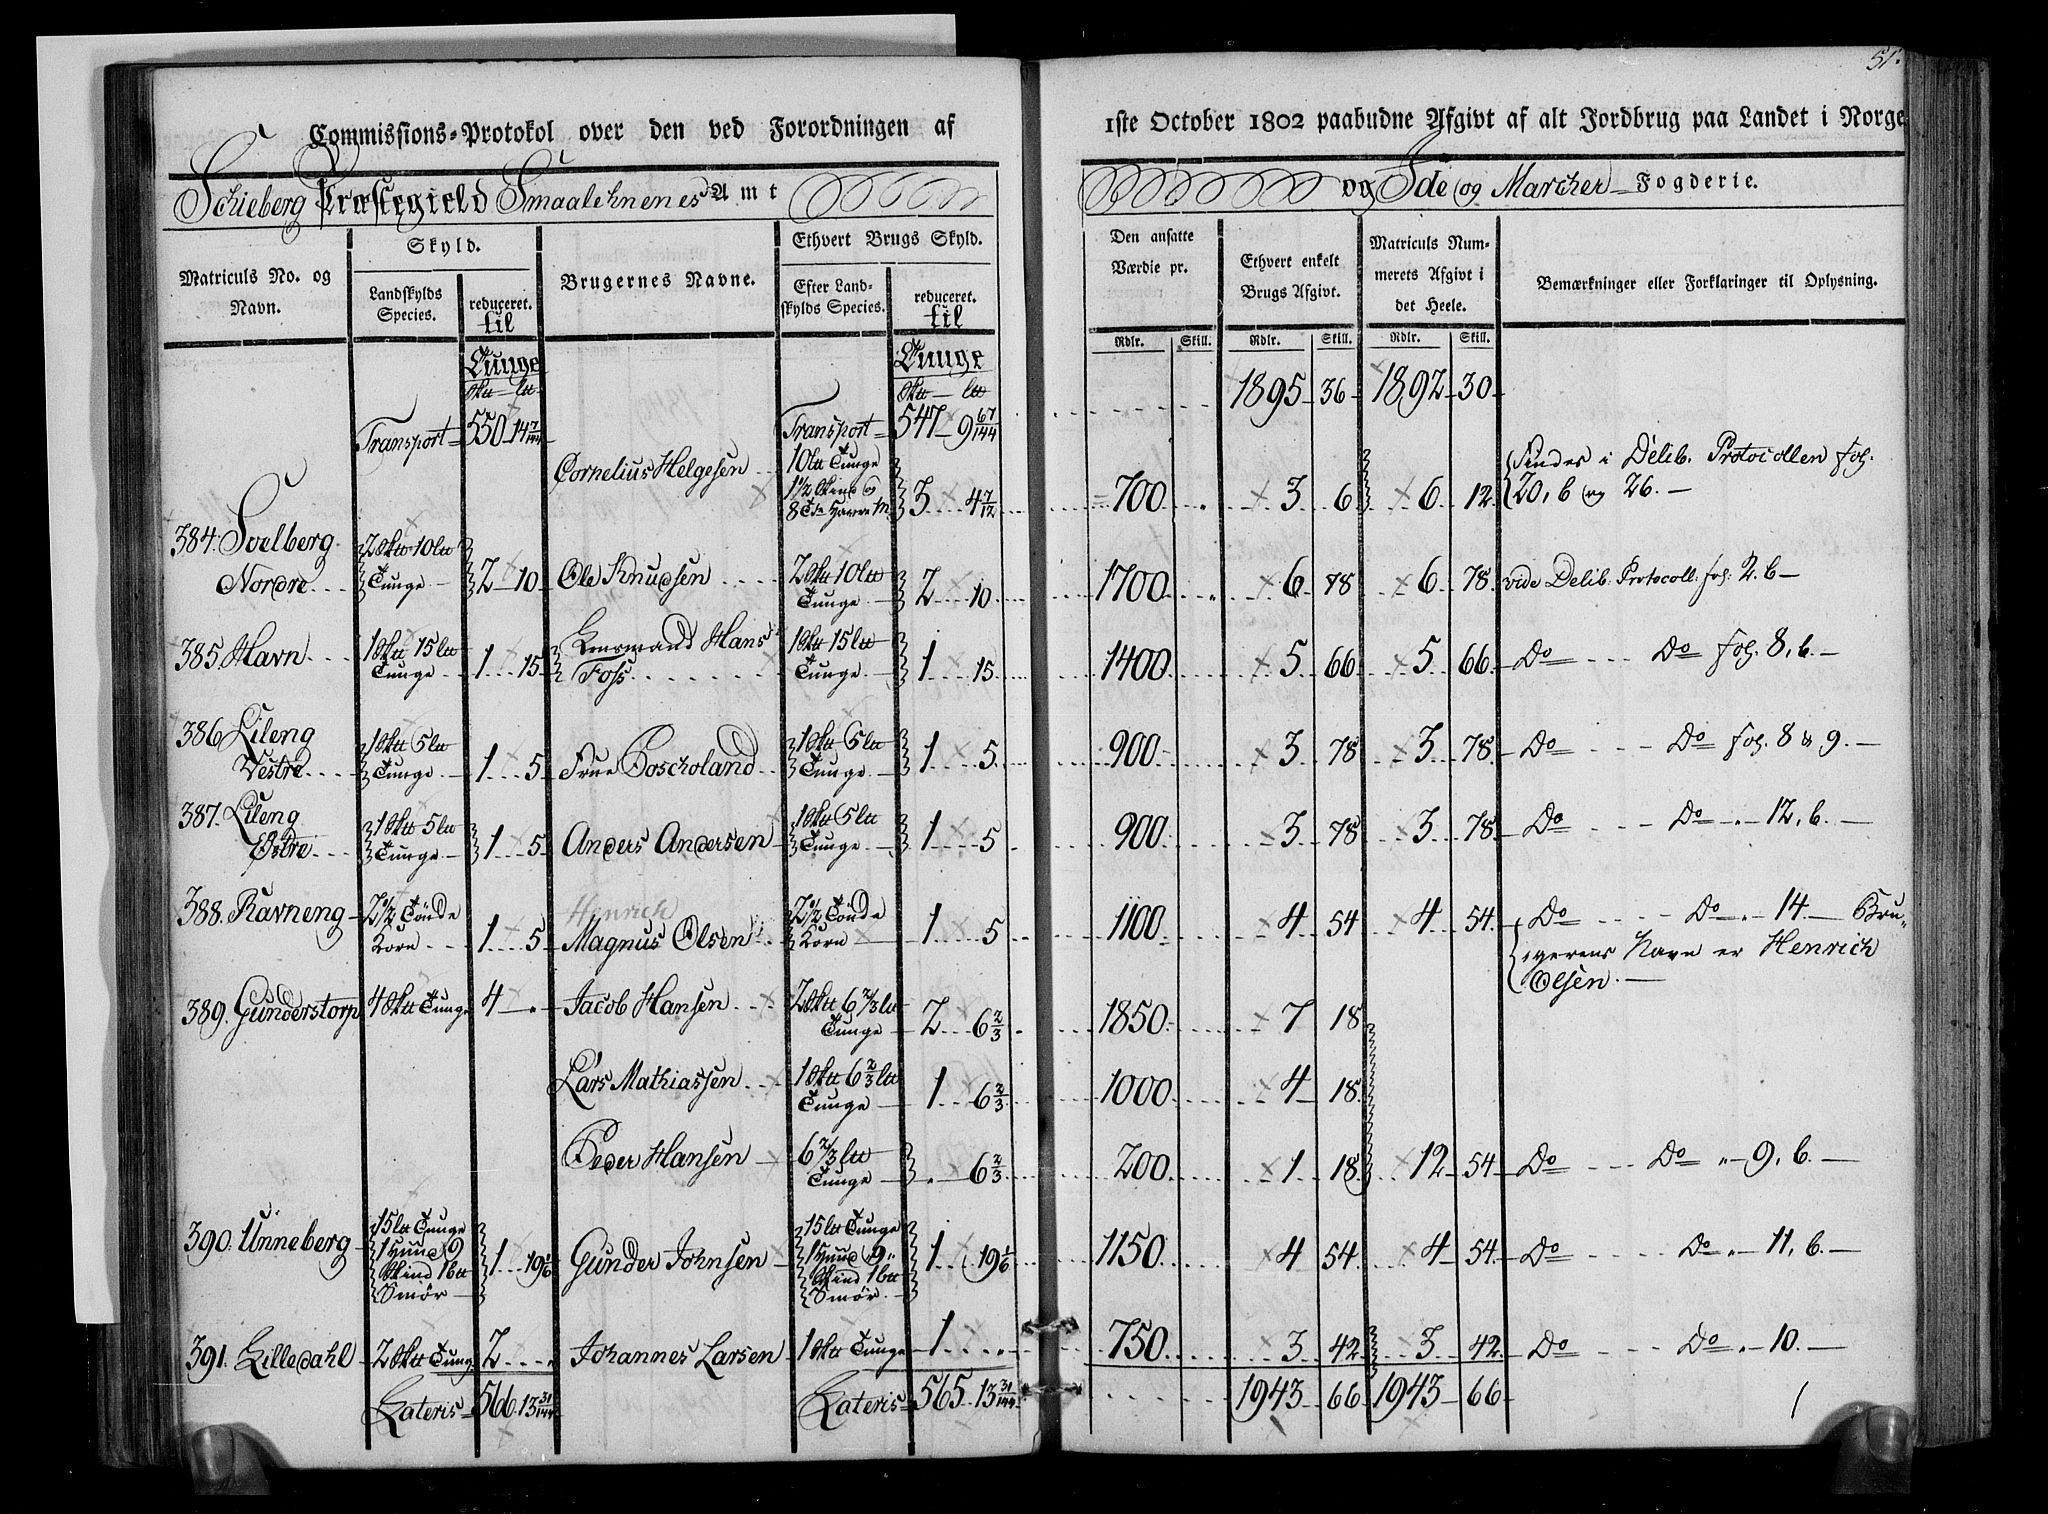 51.
Commissions-Protokol over den ved Forordningen af 1ste October 1802 paabudne Afgivt af alt Jordbrug paa Landet i Norge
Schieberg Præstegield Smaalehnenes Amt og Ide og Marcher Fogderie.
Matriculs No. og Navn.
Skyld.
Landskylds Species.
reduceret. til
Brugernes Navne.
Ethvert Brugs Skyld.
Efter Landskylds Species.
reduceret. til
Den ansatte Værdie pr.
Ethvert enkelt Brugs Afgivt.
Matriculs Nummerets Afgivt i det Heele.
Bemærkninger eller Forklaringer til Oplysning.
Tunge Tunge Rdlr. Skill. Rdlr. Skill. Rdlr. Skill.
1895 36 1892 30
Transport 550 14 7/144 Transport 547 9 67/144
Cornelius Helgesen 10 Tunge 1 1/2 Skind og 8 3 4 7/12 700 3 6 6 12 Findes i Delib. Protocollen fol. 20, b og 26.
384. Soelberg Nordre 2 10 Tunge 2 10 Ole Knudsen 2 10 Tunge 2 10 1700 6 78 6 78 vide Delib. Protocoll. fol. 2. b
385. Havn 1 15 Tunge 1 15 Lensmand Hans Foss 1 15 Tunge 1 15 1400 5 66 5 66 Do Do fol. 8, b.
386 Lileng Vestre 1 5 Tunge 1 5 Frue 1 5 Tunge 1 5 900 3 78 3 78 Do Do fol. 8 & 9.
387. Lileng Østre 1 5 Tunge 1 5 Anders Andersen 1 5 Tunge 1 5 900 3 78 3 78 Do Do " 12, b.
Hinrich
388. Ravneng 2 1/2 Tönde Korn 1 5 Magnus Olsen 2 1/2 Tönde Korn 1 5 1100 4 54 4 54 Do Do " 14 Brugerens Navn er Henrich Olsen.
389. Gunderstorp 4 Tunge 4 " Jacob Hansen 2 6 2/3 Tunge 2 6 2/3 1850 7 18
Lars Mathiassen 1 6 2/3 Tunge 1 6 2/3 1000 4 18
Peder Hansen 6 2/3 Tunge " 6 2/3 200 1 18 12 54 Do Do " 9, b.
390. Unneberg 15 Tunge 1 Huud 9 Skind 1 Smör 1 19 1/6 Gunder Johnsen 15 Tunge 1 Huud 9 Skind 1 Smör 1 19 1/6 1150 4 54 4 54 Do Do " 11, b.
391. Lilledahl 2 Tung 2 " Johannes Larsen 1 Tunge 1 " 750 3 42 3 42 Do Do " 10.
Lateris 566 13 31/144 Lateris 565 13 31/144 1943 66 1943 66